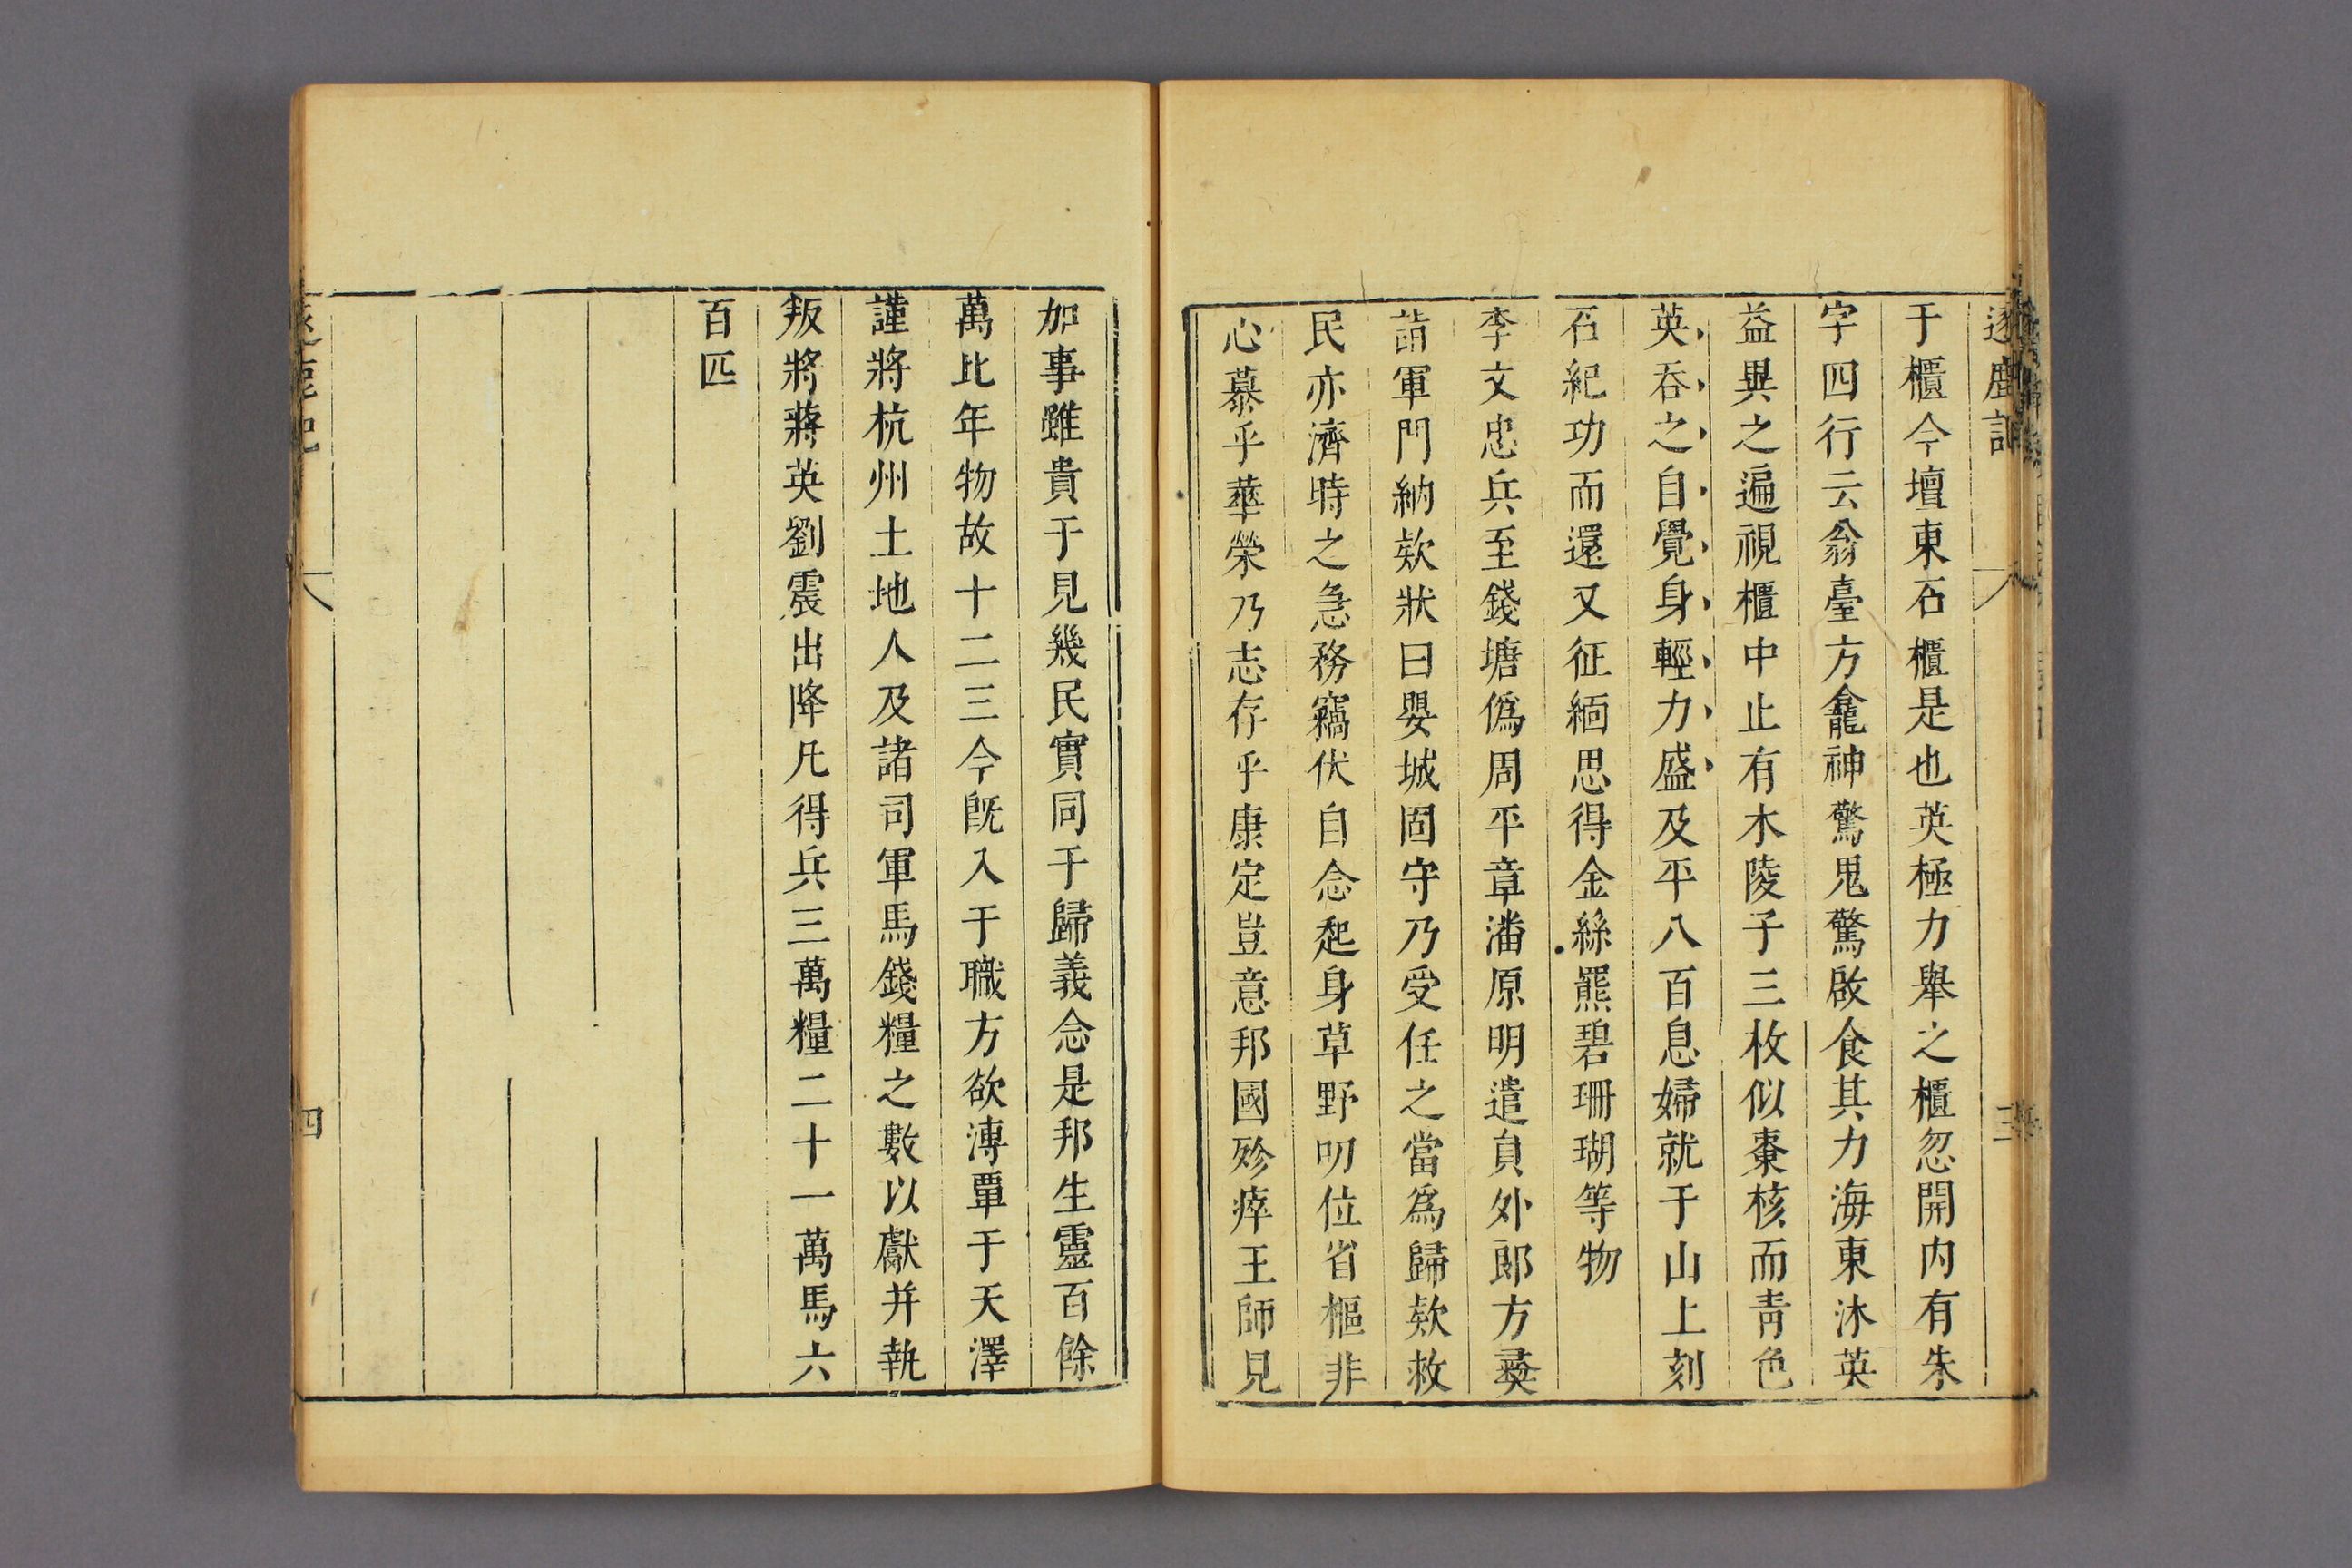 逐鹿記
三
于櫃今壇東石櫃是也英極力舉之櫃忽開內有朱
字四行云翁臺方龕神驚鬼驚啟食其力海東沐英
益異之遍視櫃中止有木陵子三枚似棗核而青色
英吞之自覺身輕力盛及平八百息婦就于山上刻
石紀功而還又征緬思得金絲羆碧珊瑚等物
李文忠兵至錢塘僞周平章潘原明遣員外郎方彛
詣軍門納欵狀曰嬰城固守乃受任之當爲歸欵救
民亦濟時之急務竊伏自念起身草野叨位省樞非
心慕乎華榮乃志存乎康定豈意邦國殄瘁王師見
加事雖貴于見幾民實同于歸義念是邦生靈百餘
萬比年物故十二三今旣入于職方欲溥覃于天澤
謹將杭州土地人及諸司軍馬錢糧之數以獻并執
叛將蔣英劉震出降凡得兵三萬糧二十一萬馬六
百匹
四